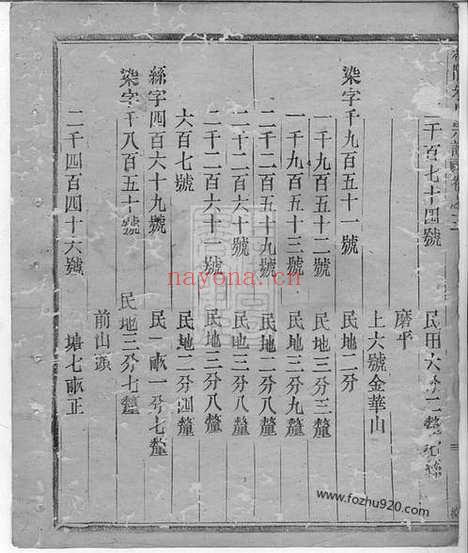 二千百七十四號 民田六分二釐
磨平
上六號金華山
染字千九百五十一號 民地二分
一千九百五十二號 民地三分三釐
一千九百五十三號 民地三分九釐
二千二百五十九號 民地一分八釐
二千二百六十號 民地三分八釐
二千二百六十一號 民地三分八釐
六百七號 民地二分四釐
絲字四百六十九號 民一畝一分七釐
染字千八百五十號 民地三分七釐
前山頭
二千四百四十六號 塘七畝正
nayona.cn
www.fozhu920.com